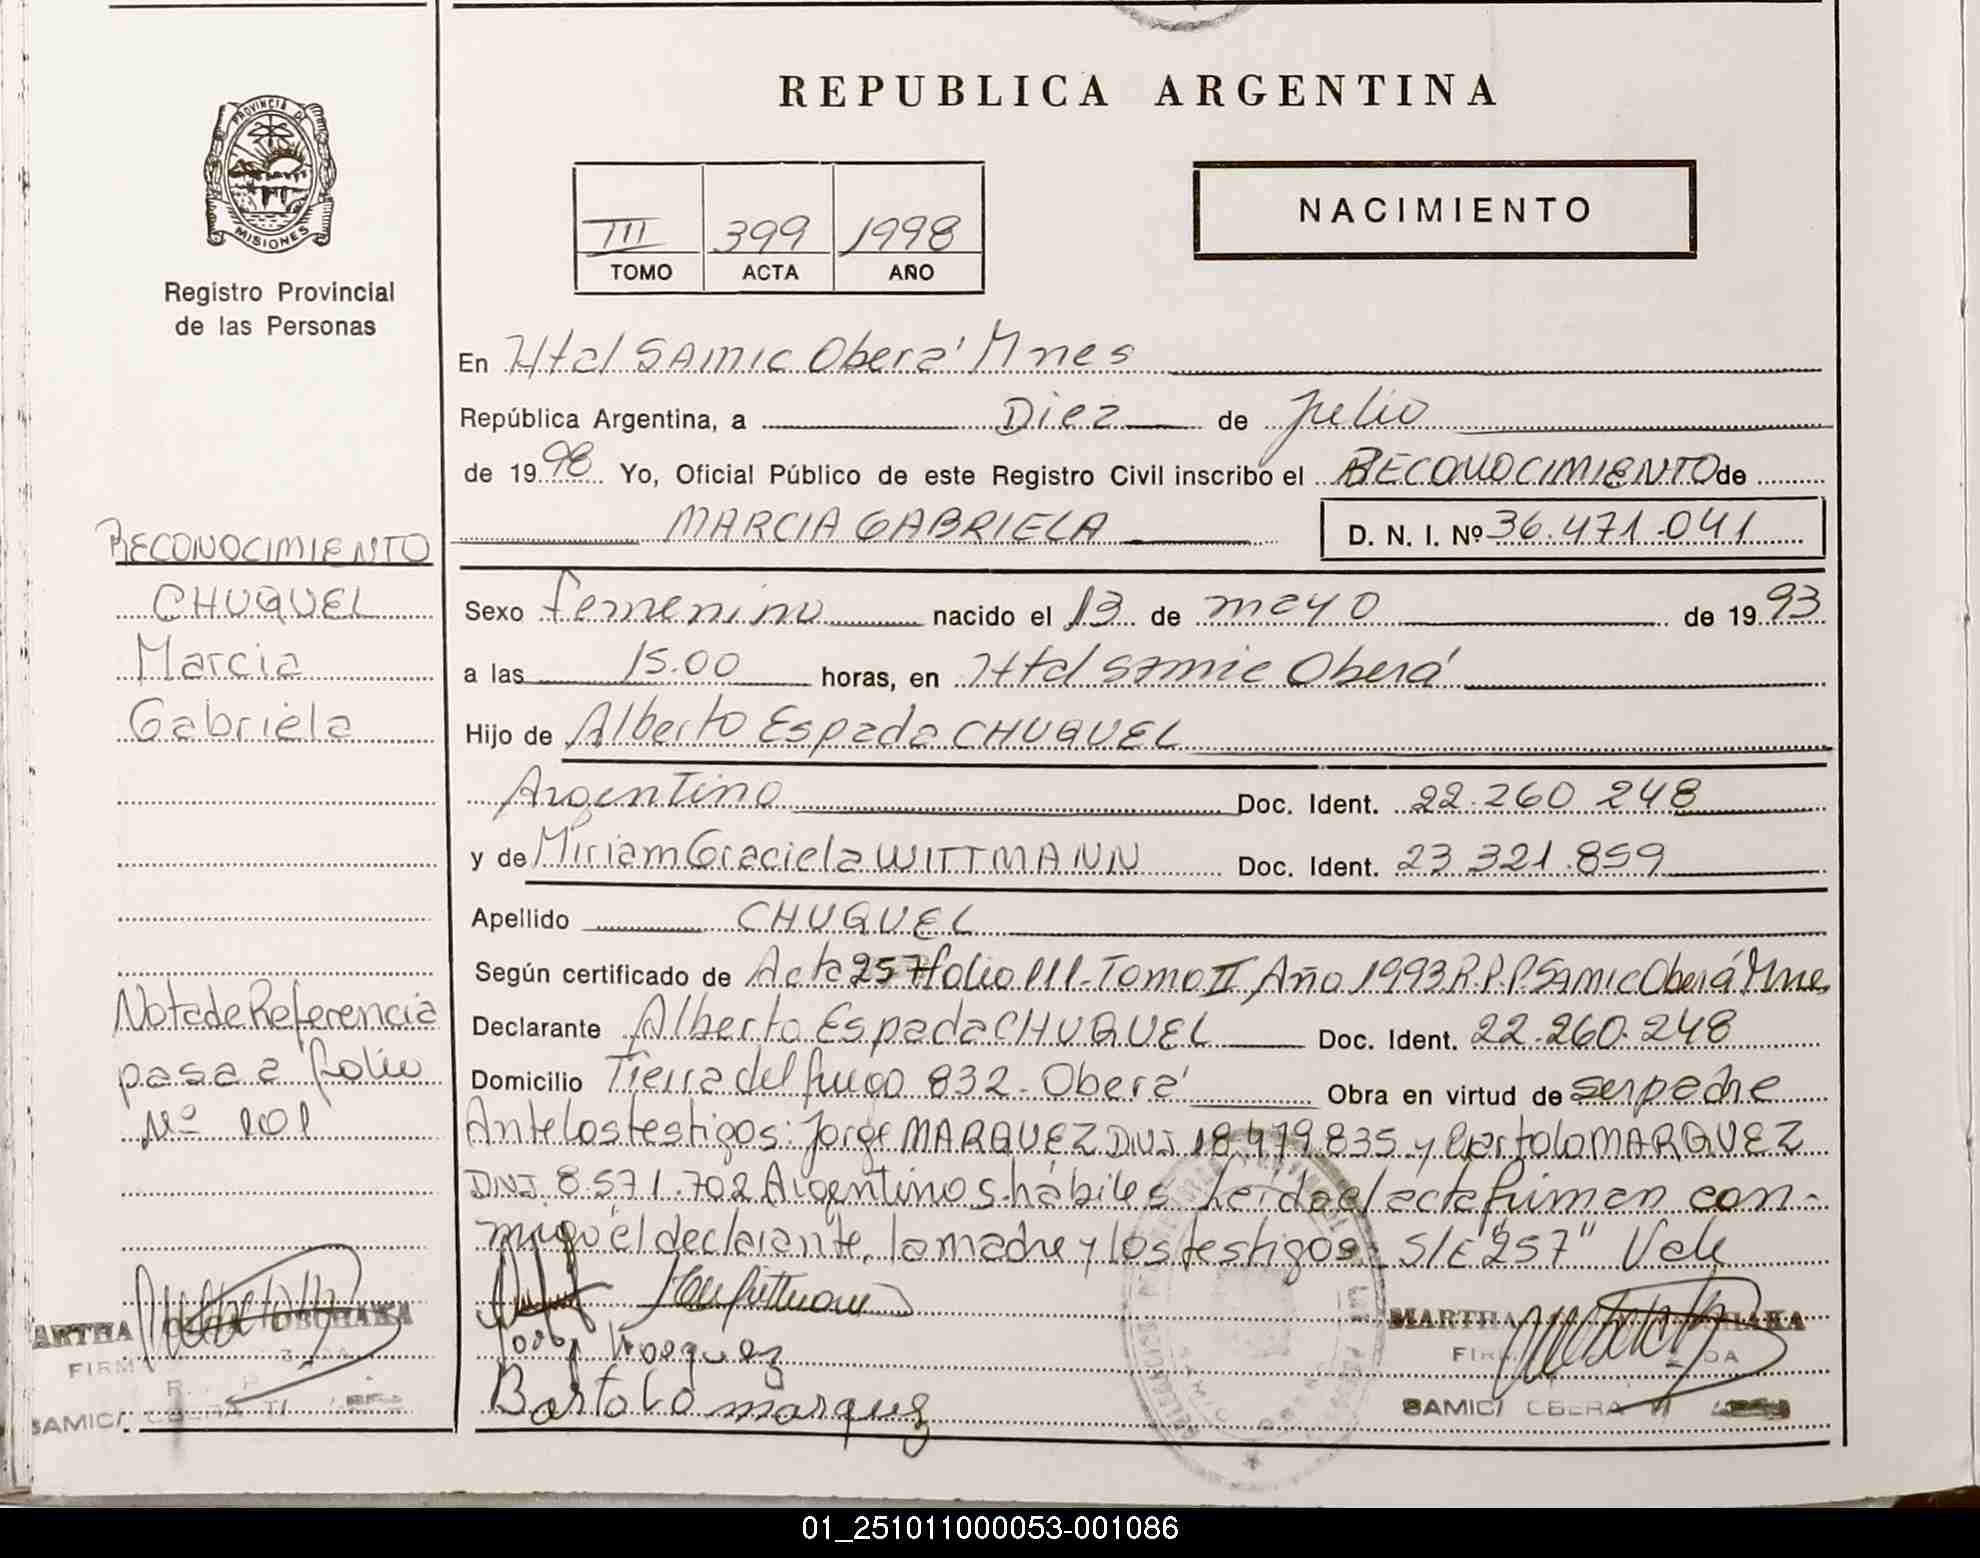 REPUBLICA ARGENTINA
PROVINCIA DE
MISIONES
Registro Provincial
de las Personas
NACIMIENTO
III 399 1998
TOMO ACTA AÑO
En Htal SAMIC Oberá Mnes
República Argentina, a Diez de Julio
de 1998 Yo, Oficial Público de este Registro Civil inscribo el RECONOCIMIENTO de
MARCIA GABRIELA D. N. I. Nº 36.471.041
Sexo femenino nacido el 13 de mayo de 1993
a las 15.00 horas, en Htal Samic Oberá
Hijo de Alberto Espada CHUQUEL
Argentino Doc. Ident. 22.260 248
y de Miriam Graciela WITTMANN Doc. Ident. 23 321.859
Apellido CHUQUEL
Según certificado de Acta 257 folio 111-Tomo II Año 1993 R.P.P. Samic Oberá Mnes
Declarante Alberto Espada CHUQUEL Doc. Ident. 22.260.248
Domicilio Tierra del fuego 832-Oberá Obra en virtud de ser padre
Ante los testigos: Jorge MARQUEZ DNI 18.479.835 y Bartolo MARQUEZ
DNI 8.571.702 Argentinos hábiles Leída el acta firman con-
migo el declarante, la madre y los testigos: S/E "257" Vale
Jorge Marquez
Bartolo marquez
MARTHA
SAMIC/ OBERA
RECONOCIMIENTO
CHUQUEL
Marcia
Gabriela
Nota de Referencia
pasa a folio
Nº 101
ARTHA OBUHAKA
SAMIC/ OBERA
01_251011000053-001086